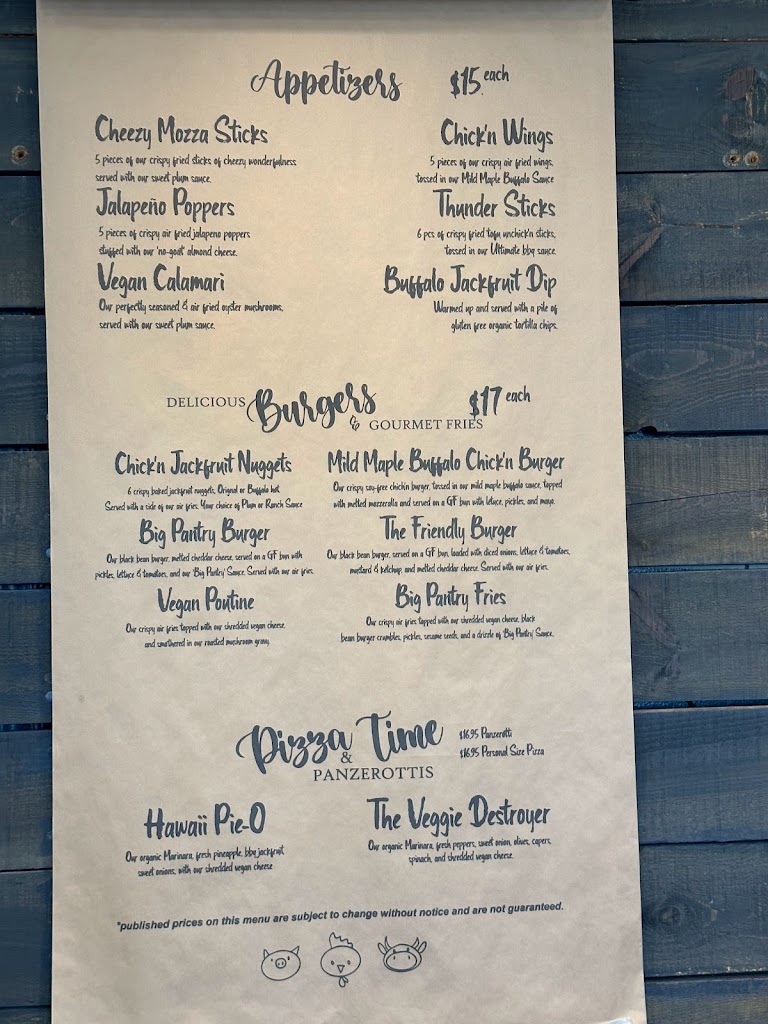 Appetizers $15 each
Cheezy Mozza Sticks
5 pieces of our crispy fried sticks of cheezy wonderfulness
served with our sweet plum sauce.
Chick'n Wings
5 pieces of our crispy air fried wings,
tossed in our Mild Maple Buffalo Sauce
Jalapeño Poppers
5 pieces of crispy air fried jalapeno poppers
stuffed with our 'no-goat' almond cheese.
Thunder Sticks
6 pcs of crispy fried tofu unchick'n sticks,
tossed in our Ultimate bbq sauce.
Vegan Calamari
Our perfectly seasoned & air fried oyster mushrooms,
served with our sweet plum sauce.
Buffalo Jackfruit Dip
Warmed up and served with a pile of
gluten free organic tortilla chips.
DELICIOUS Burgers $17 each
& GOURMET FRIES
Chick'n Jackfruit Nuggets
6 crispy baked jackfruit nuggets, Original or Buffalo hot
Served with a side of our air fries, Your choice of Plum or Ranch Sauce
Mild Maple Buffalo Chick'n Burger
Our crispy soy-free chick'n burger, tossed in our mild maple buffalo sauce, topped
with melted mozzerella and served on a GF bun with letuce, pickles, and mayo.
Big Pantry Burger
Our black bean burger, melted cheddar cheese, served on a GF bun with
pickles, lettuce & tomatoes, and our 'Big Pantry' Sauce. Served with our air fries.
The Friendly Burger
Our black bean burger, served on a GF bun, loaded with diced onions, lettuce & tomatoes,
mustard & ketchup, and melted cheddar cheese. Served with our air fries.
Vegan Poutine
Our crispy air fries topped with our shredded vegan cheese,
and smothered in our roasted mushroom gravy.
Big Pantry Fries
Our crispy air fries topped with our shredded vegan cheese, black
bean burger crumbles, pickles, sesame seeds, and a drizzle of 'Big Pantry' Sauce.
Pizza Time
&
PANZEROTTIS
$16.95 Panzerotti
$16.95 Personal Size Pizza
Hawaii Pie-O
Our organic Marinara, fresh pineapple, bbq jackfruit
sweet onions, with our shredded vegan cheese
The Veggie Destroyer
Our organic Marinara, fresh peppers, sweet onion, olives, capers,
spinach, and shredded vegan cheese.
*published prices on this menu are subject to change without notice and are not guaranteed.